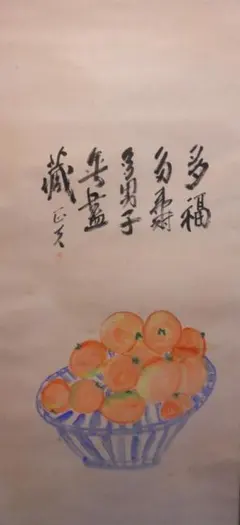 多福
多壽
多男子
無盡
藏